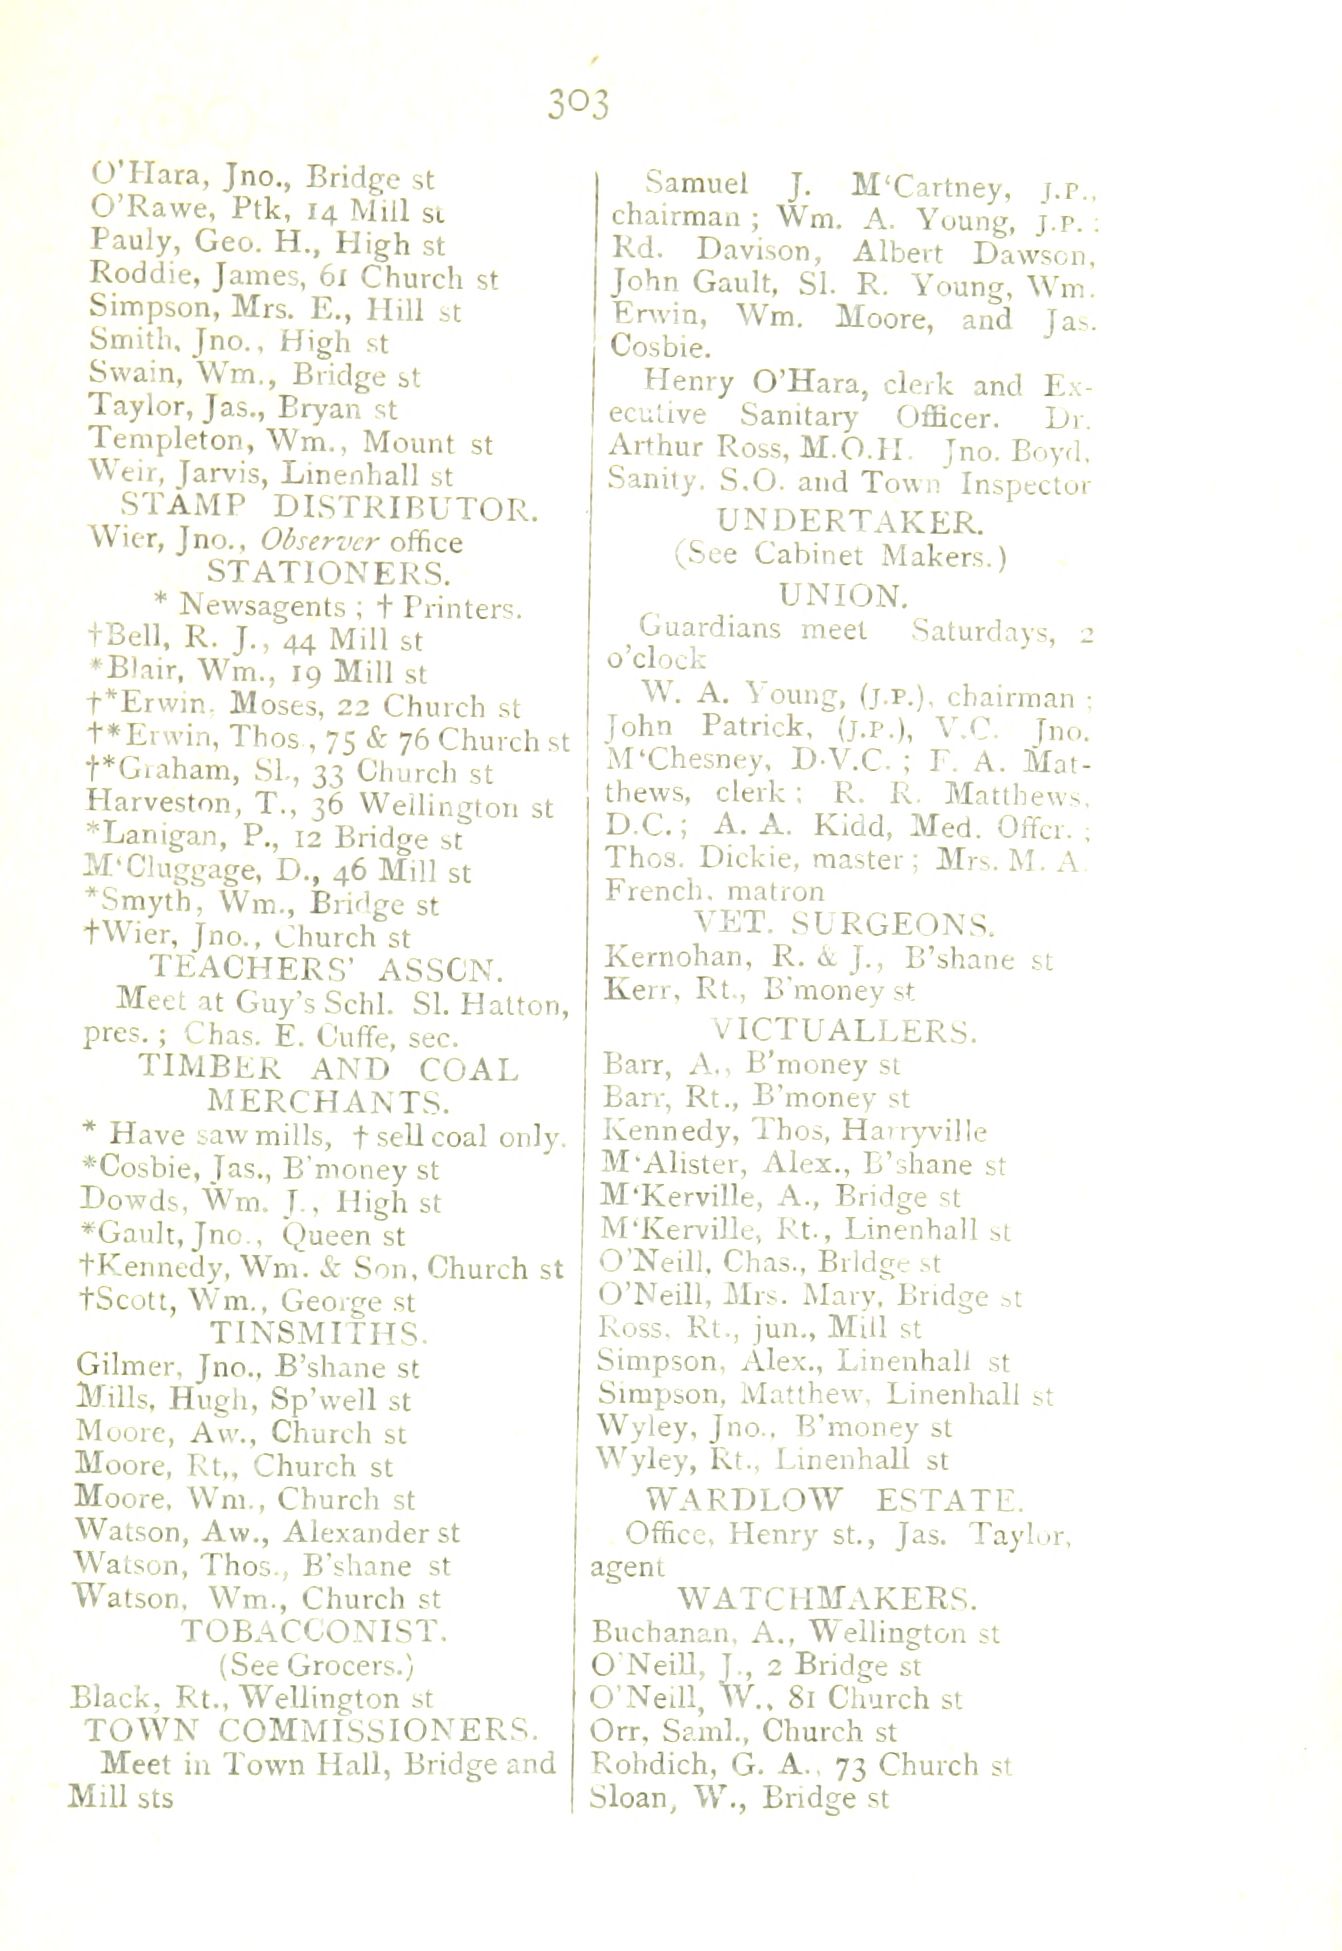 303
O'Hara, Jno., Bridge st
O'Rawe, Ptk, 14 Mill st
Pauly, Geo. H., High st
Roddie, James, 61 Church st
Simpson, Mrs. E., Hill st
Smith, Jno., High st
Swain, Wm., Bridge st
Taylor, Jas., Bryan st
Templeton, Wm., Mount st
Weir, Jarvis, Linenhall st
STAMP DISTRIBUTOR.
Wier, Jno., Observer office
STATIONERS.
* Newsagents ; † Printers.
†Bell, R. J., 44 Mill st
*Blair, Wm., 19 Mill st
†*Erwin, Moses, 22 Church st
†*Erwin, Thos., 75 & 76 Church st
†*Graham, Sl., 33 Church st
Harveston, T., 36 Wellington st
*Lanigan, P., 12 Bridge st
M‘Cluggage, D., 46 Mill st
*Smyth, Wm., Bridge st
†Wier, Jno., Church st
TEACHERS' ASSCN.
Meet at Guy's Schl. Sl. Hatton,
pres. ; Chas. E. Cuffe, sec.
TIMBER AND COAL
MERCHANTS.
* Have saw mills, † sell coal only.
*Cosbie, Jas., B'money st
Dowds, Wm. J., High st
*Gault, Jno., Queen st
†Kennedy, Wm. & Son, Church st
†Scott, Wm., George st
TINSMITHS.
Gilmer, Jno., B'shane st
Mills, Hugh, Sp'well st
Moore, Aw., Church st
Moore, Rt,, Church st
Moore, Wm., Church st
Watson, Aw., Alexander st
Watson, Thos., B'shane st
Watson, Wm., Church st
TOBACCONIST.
(See Grocers.)
Black, Rt., Wellington st
TOWN COMMISSIONERS.
Meet in Town Hall, Bridge and
Mill sts
Samuel J. M‘Cartney, J.P.,
chairman ; Wm. A. Young, J.P. ;
Rd. Davison, Albert Dawson,
John Gault, Sl. R. Young, Wm.
Erwin, Wm. Moore, and Jas.
Cosbie.
Henry O'Hara, clerk and Ex-
ecutive Sanitary Officer. Dr.
Arthur Ross, M.O.H. Jno. Boyd,
Sanity. S.O. and Town Inspector
UNDERTAKER.
(See Cabinet Makers.)
UNION.
Guardians meet Saturdays, 2
o'clock
W. A. Young, (J.P.), chairman ;
John Patrick, (J.P.), V.C. Jno.
M‘Chesney, D.V.C. ; F. A. Mat-
thews, clerk ; R. R. Matthews,
D.C. ; A. A. Kidd, Med. Offcr. ;
Thos. Dickie, master ; Mrs. M. A.
French, matron
VET. SURGEONS.
Kernohan, R. & J., B'shane st
Kerr, Rt., B'money st
VICTUALLERS.
Barr, A., B'money st
Barr, Rt., B'money st
Kennedy, Thos, Harryville
M‘Alister, Alex., B'shane st
M‘Kerville, A., Bridge st
M‘Kerville, Rt., Linenhall st
O'Neill, Chas., Brldge st
O'Neill, Mrs. Mary, Bridge st
Ross, Rt., jun., Mill st
Simpson, Alex., Linenhall st
Simpson, Matthew, Linenhall st
Wyley, Jno., B'money st
Wyley, Rt., Linenhall st
WARDLOW ESTATE.
Office, Henry st., Jas. Taylor,
agent
WATCHMAKERS.
Buchanan, A., Wellington st
O'Neill, J., 2 Bridge st
O'Neill, W., 81 Church st
Orr, Saml., Church st
Rohdich, G. A., 73 Church st
Sloan, W., Bridge st